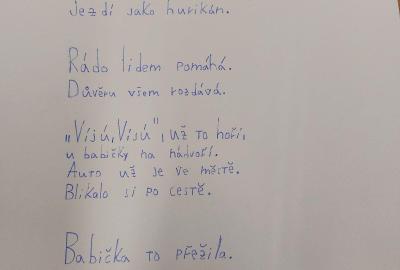 Jezdí jako hurikán.
Rádo lidem pomáhá.
Důvěru všem rozdává.
„Víjú, Vijú", už to hoří,
u babičky na nádvoří.
Auto už je ve městě.
Blikalo si po cestě.
Babička to přežila.